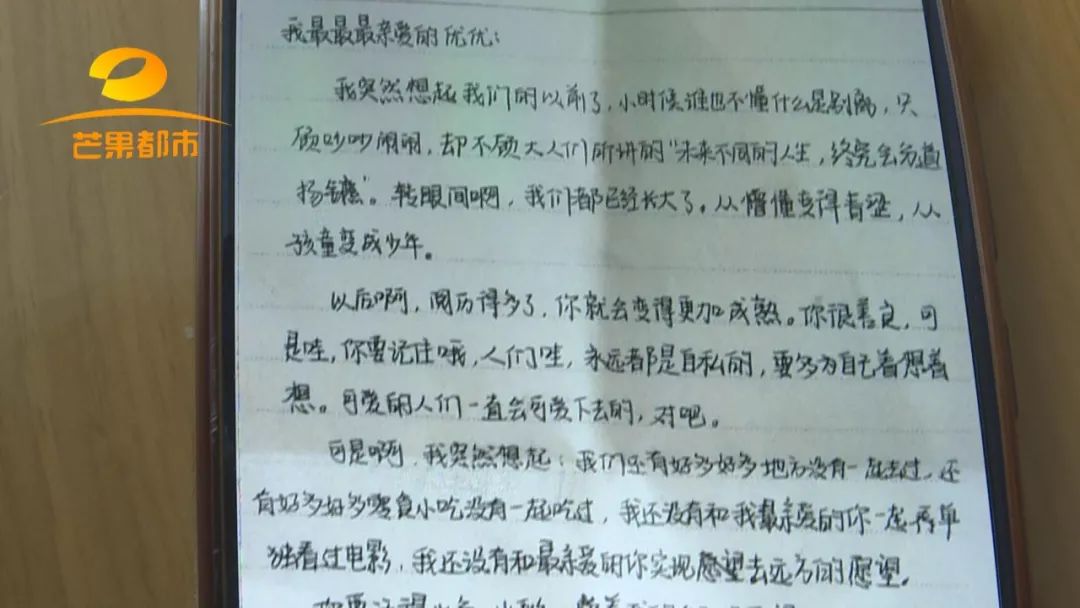 芒果都市
我最最最亲爱的优优：
我突然想起我们的以前了，小时候谁也不懂什么是别离，只
顾吵吵闹闹，却不顾大人们所讲的"未来不同的人生，终究会分道
扬镳"。转眼间啊，我们都已经长大了。从懵懂变得青涩，从
孩童变成少年。
以后啊，阅历得多了，你就会变得更加成熟。你很善良，可
是哇，你要记住哦，人们哇，永远都是自私的，要多为自己着想着
想。可爱的人们一直会可爱下去的，对吧。
可是啊，我突然想起：我们还有好多好多地方没有一起去过，还
有好多好多零食小吃没有一起吃过，我还没有和我最亲爱的你一起再单
独看过电影，我还没有和最亲爱的你实现愿望去远方的愿望。